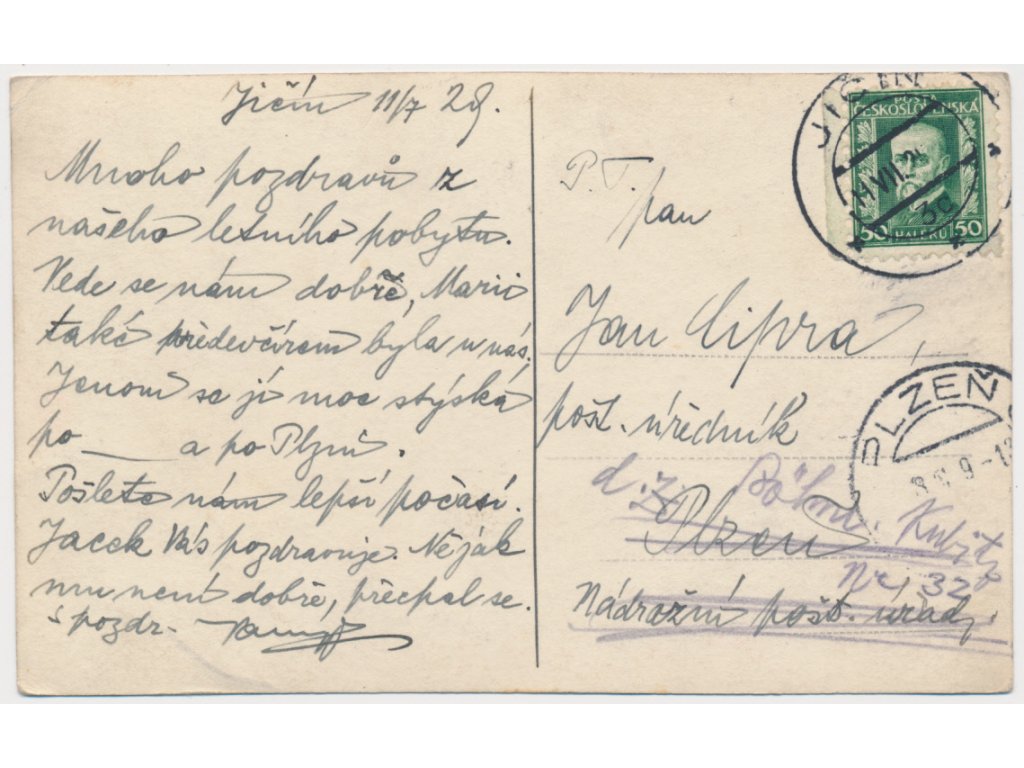 Jičín 11/7 28.
Mnoho pozdravů z
našeho letního pobytu.
Vede se nám dobře, Marii
také předevčírem byla u nás.
Jenom se jí moc stýská
po ___ a po Plzni.
Pošlete nám lepší počasí.
Jacek Vás pozdravuje. Nějak
mu není dobře, přecpal se.
S pozdr.
JIČÍN
POŠTA
ČESKOSLOVENSKÁ
50 HALÉŘŮ 50
P. T.
pan
Jan Cipra,
pošt. úředník
PLZEŇ
Plzeň
Nr. 32
Nádražní pošt. úřad.